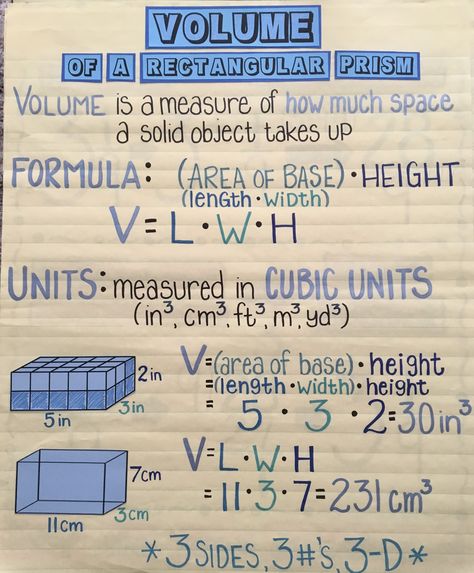 VOLUME
OF A RECTANGULAR PRISM
VOLUME is a measure of how much space
a solid object takes up
FORMULA: (AREA OF BASE) • HEIGHT
(length • width)
V = L • W • H
UNITS: measured in CUBIC UNITS
(in³, cm³, ft³, m³, yd³)
2in
3in
5in
V = (area of base) • height
= (length • width) • height
= 5 • 3 • 2 = 30 in³
7cm
3cm
11cm
V = L • W • H
= 11 • 3 • 7 = 231 cm³
* 3 SIDES, 3 #'s, 3-D *